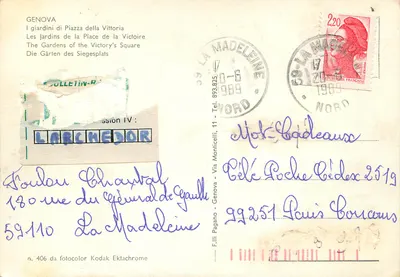 GENOVA
I giardini di Piazza della Vittoria
Les Jardins de la Place de la Victoire
The Gardens of the Victory's Square
Die Gärten des Siegesplats
BULLETIN-R
ssion IV :
LARCHEDOR
Foulon Chantal
180 rue du Général de Gaulle
59110 La Madeleine
n. 406 da fotocolor Kodak Ektachrome
F.lli Pagano - Genova - Via Monticelli, 11 - Tel. 893.825
59-LA MADELEINE
17
20-6
1989
NORD
2,20
59-LA MADELEINE
17
20-6
1989
NORD
Mots-Cadeaux
Télé Poche Cédex 2519
99251 Paris Concours